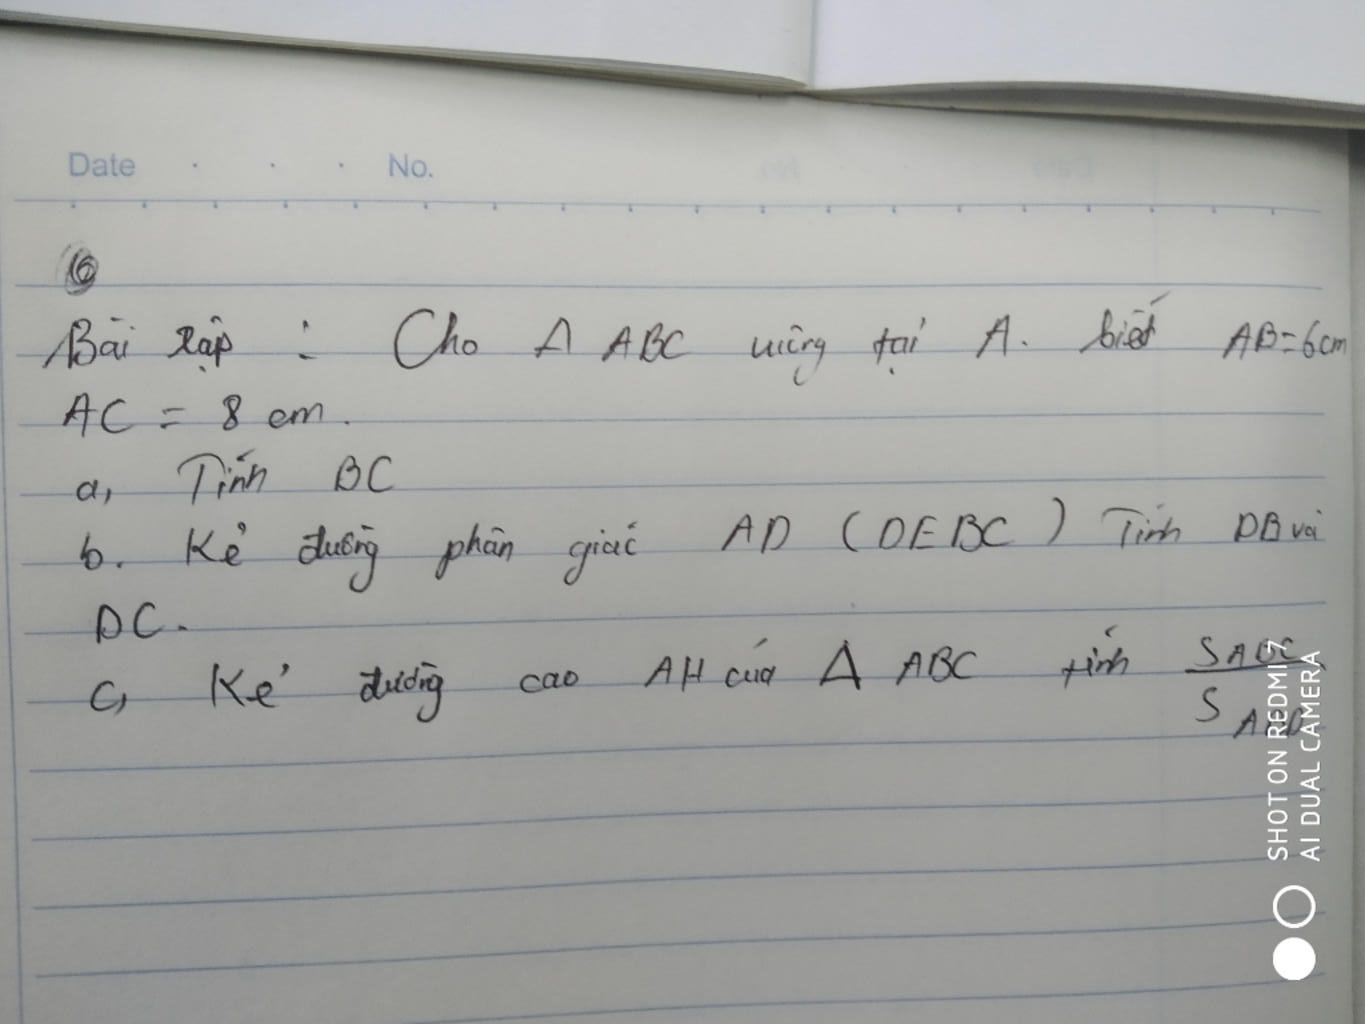 Date . . . No.
6
Bài tập : Cho Δ ABC vuông tại A. biết AB = 6cm
AC = 8 cm.
a, Tính BC
b. Kẻ đường phân giác AD (D∈BC) Tính DB và
DC.
c, Kẻ đường cao AH của Δ ABC tính S ABC
S
SHOT ON REDMI 7
AI DUAL CAMERA